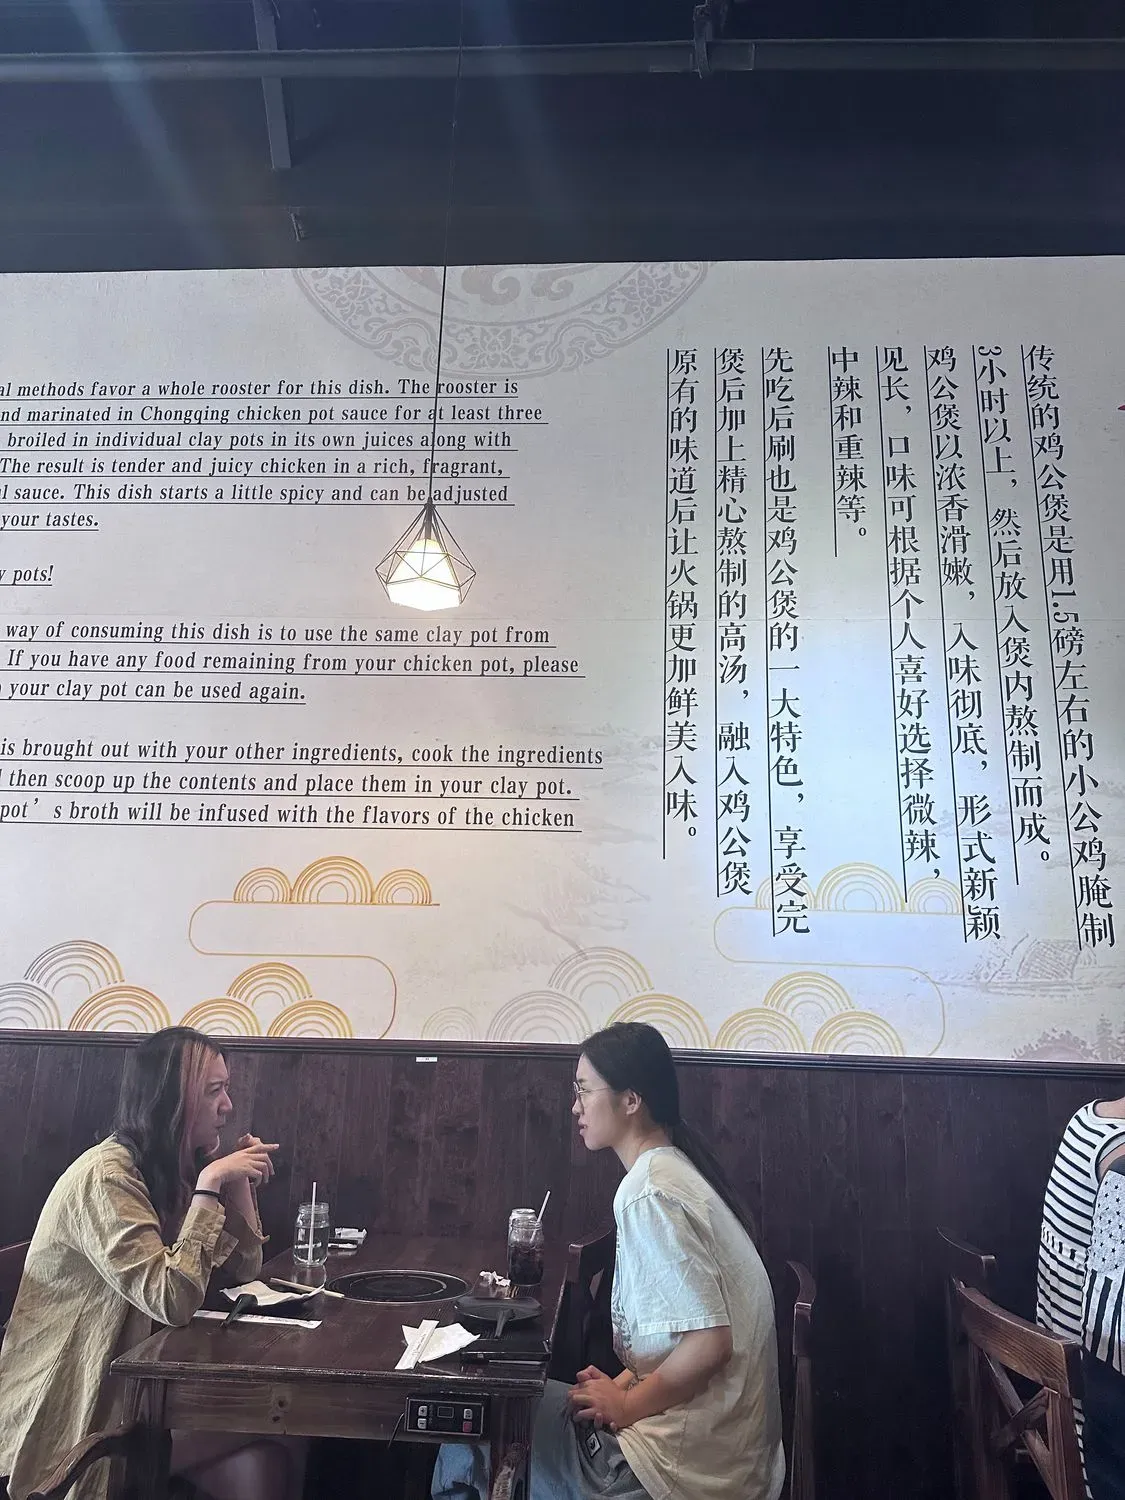 al methods favor a whole rooster for this dish. The rooster is
nd marinated in Chongqing chicken pot sauce for at least three
broiled in individual clay pots in its own juices along with
The result is tender and juicy chicken in a rich, fragrant,
l sauce. This dish starts a little spicy and can be adjusted
your tastes.
y pots!
way of consuming this dish is to use the same clay pot from
If you have any food remaining from your chicken pot, please
your clay pot can be used again.
is brought out with your other ingredients, cook the ingredients
then scoop up the contents and place them in your clay pot.
pot's broth will be infused with the flavors of the chicken
传统的鸡公煲是用1.5磅左右的小公鸡腌制
3小时以上，然后放入煲内熬制而成。
鸡公煲以浓香滑嫩，入味彻底，形式新颖
见长，口味可根据个人喜好选择微辣，
中辣和重辣等。
先吃后刷也是鸡公煲的一大特色，享受完
煲后加上精心熬制的高汤，融入鸡公煲
原有的味道后让火锅更加鲜美入味。